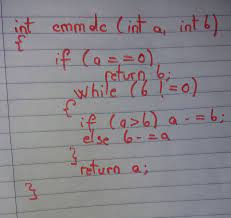 int cmmdc (int a, int b)
{
if (a == 0)
return b;
while (b != 0)
{
if (a>b) a -= b;
else b -= a
}
return a;
}